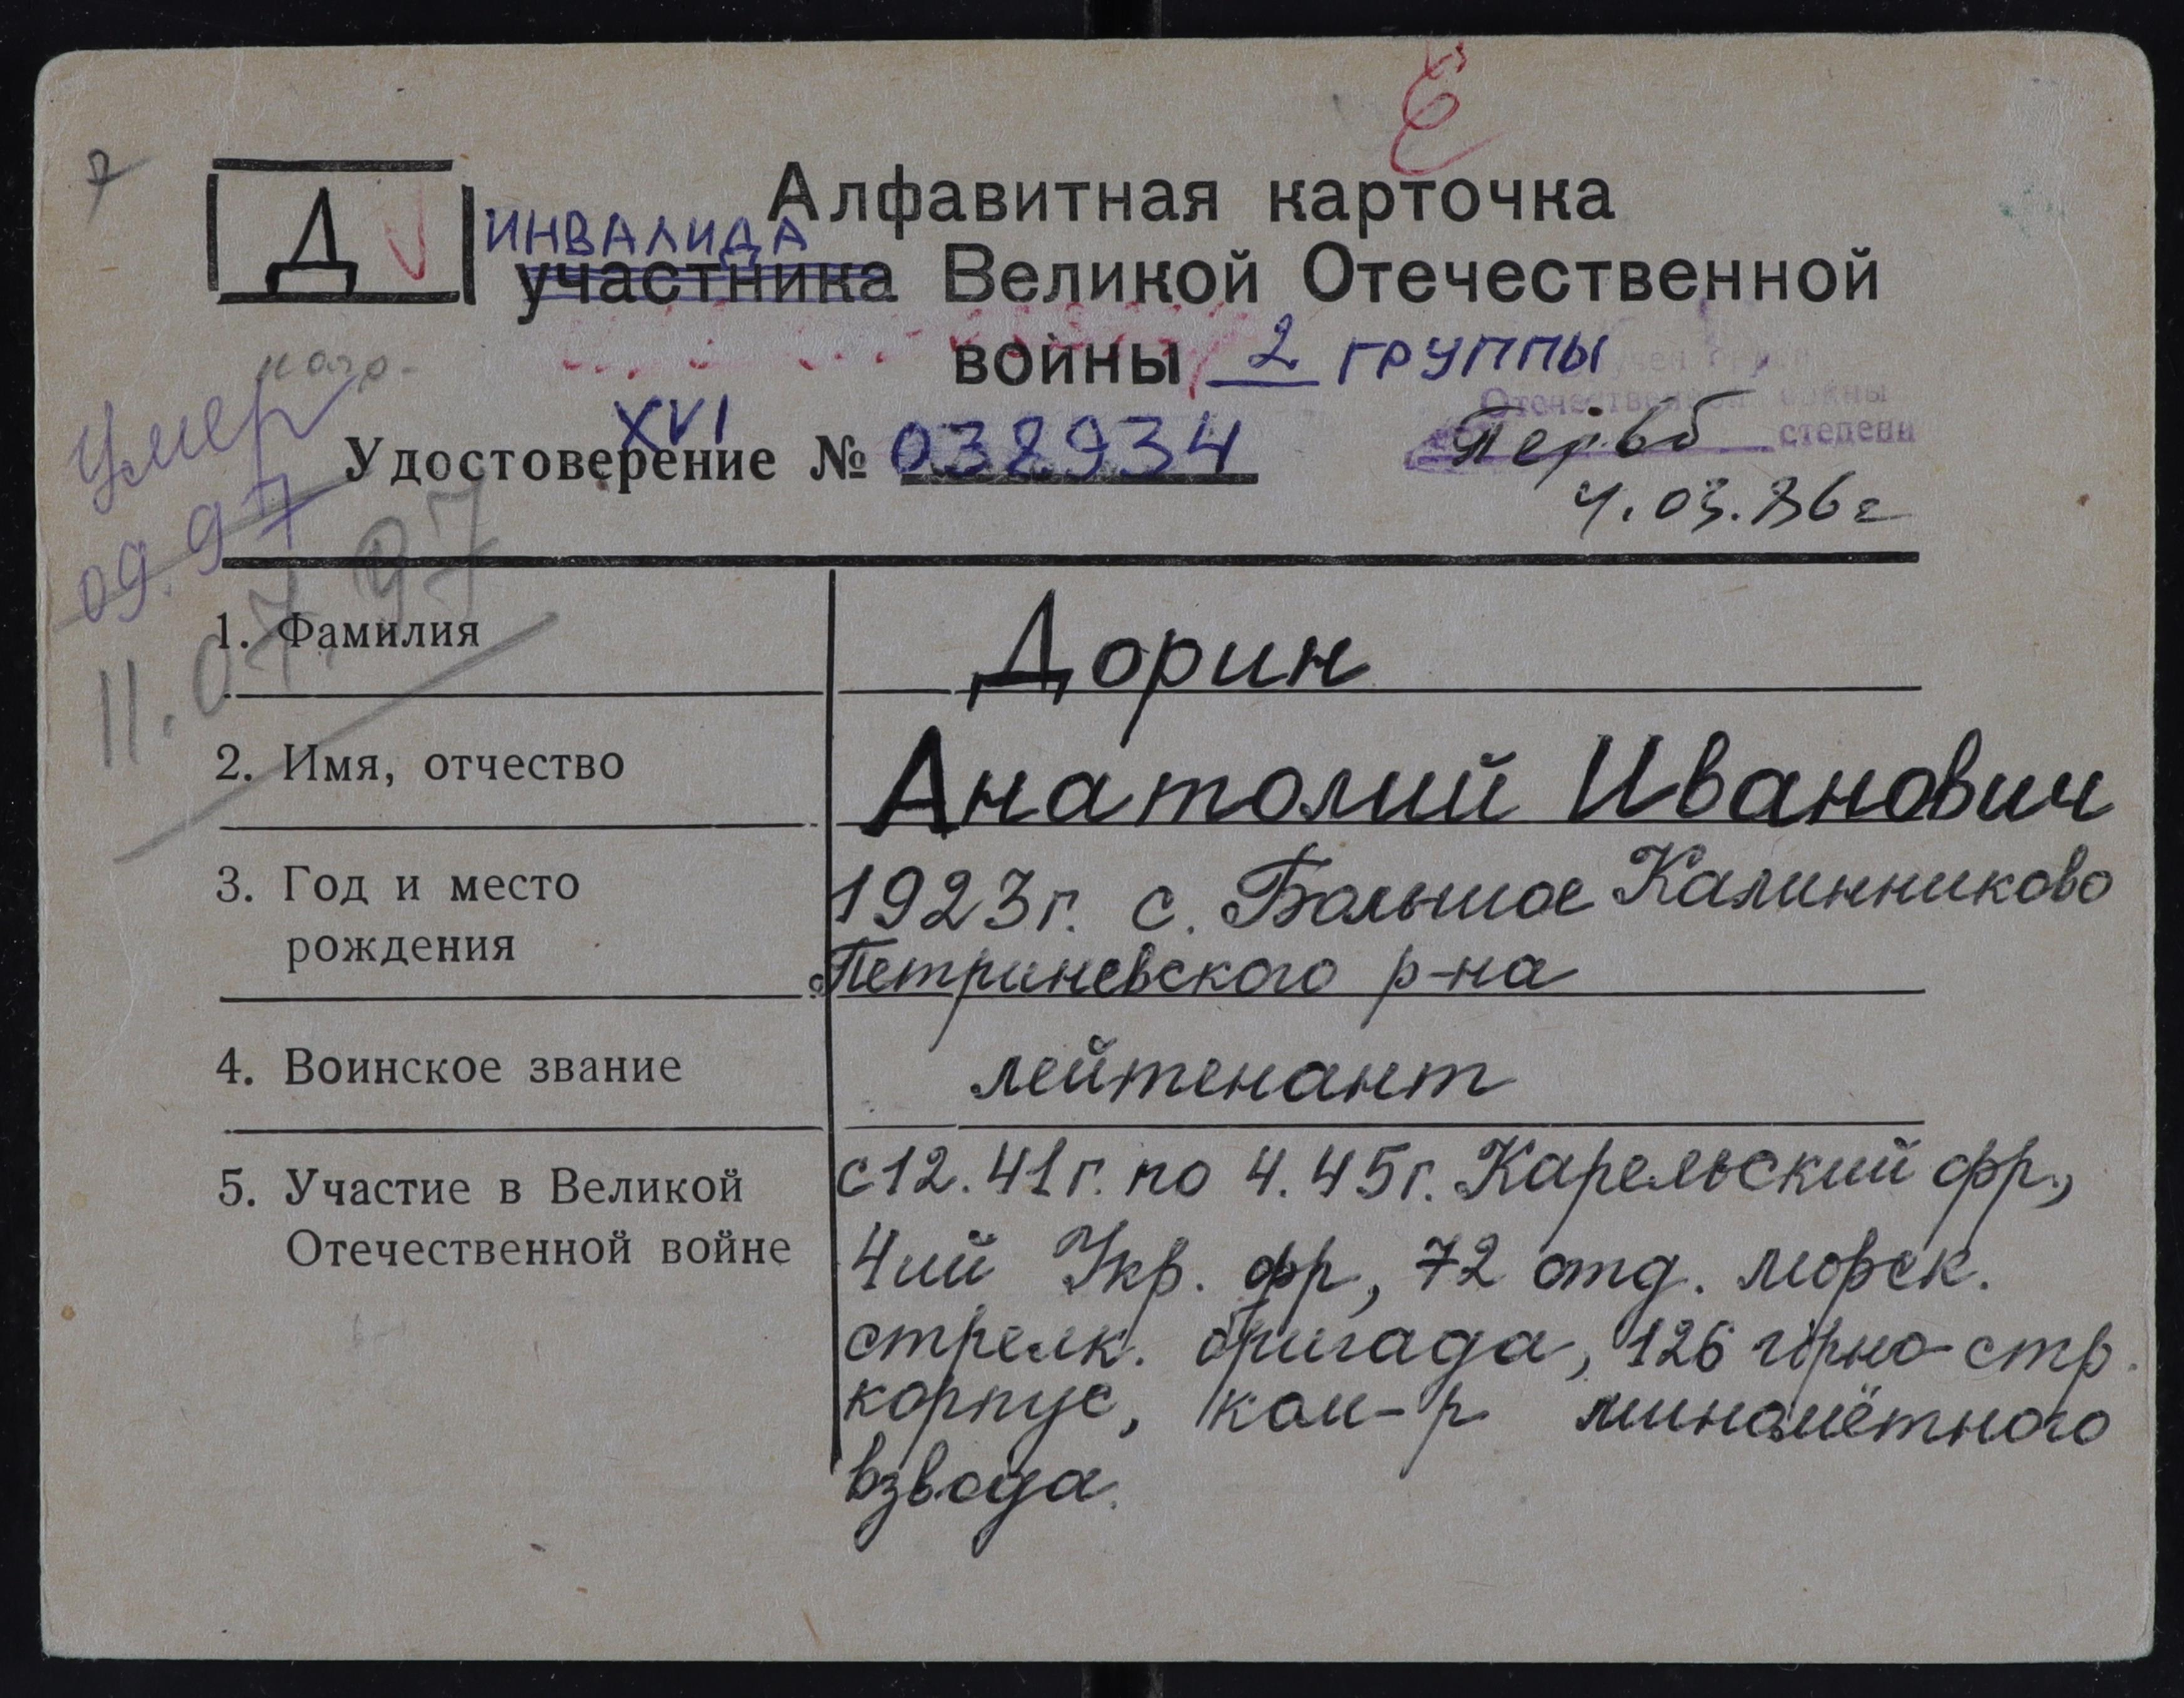 7
Д
Алфавитная карточка
ИНВАЛИДА
участника Великой Отечественной
войны 2 ГРУППЫ
Отечественной войны
степени
4.03.86г
XVI
Удостоверение № 038934
Умер
09.97
11.07.97
1. Фамилия
Дорин
2. Имя, отчество
Анатолий Иванович
3. Год и место
рождения
1923г. с. Большое Калинниково
Петриневского р-на
4. Воинское звание
лейтенант
5. Участие в Великой
Отечественной войне
с 12.41г. по 4.45г. Карельский фр.,
4ий Укр. фр, 72 отд. морск.
стрелк. бригада, 126 горно-стр.
корпус, ком-р миномётного
взвода.